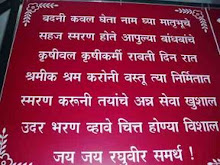 बदनी कवल घेता नाम घ्या मातृभूचे
सहज स्मरण होते आपुल्या बांधवांचे
कृषीवल कृषीकर्मी राबती दिन रात
श्रमीक श्रम करोनी वस्तू त्या निर्मितात
स्मरण करूनी तयांचे अन्न सेवा खुशाल
उदर भरण व्हावे चित्त होण्या विशाल
जय जय रघुवीर समर्थ !